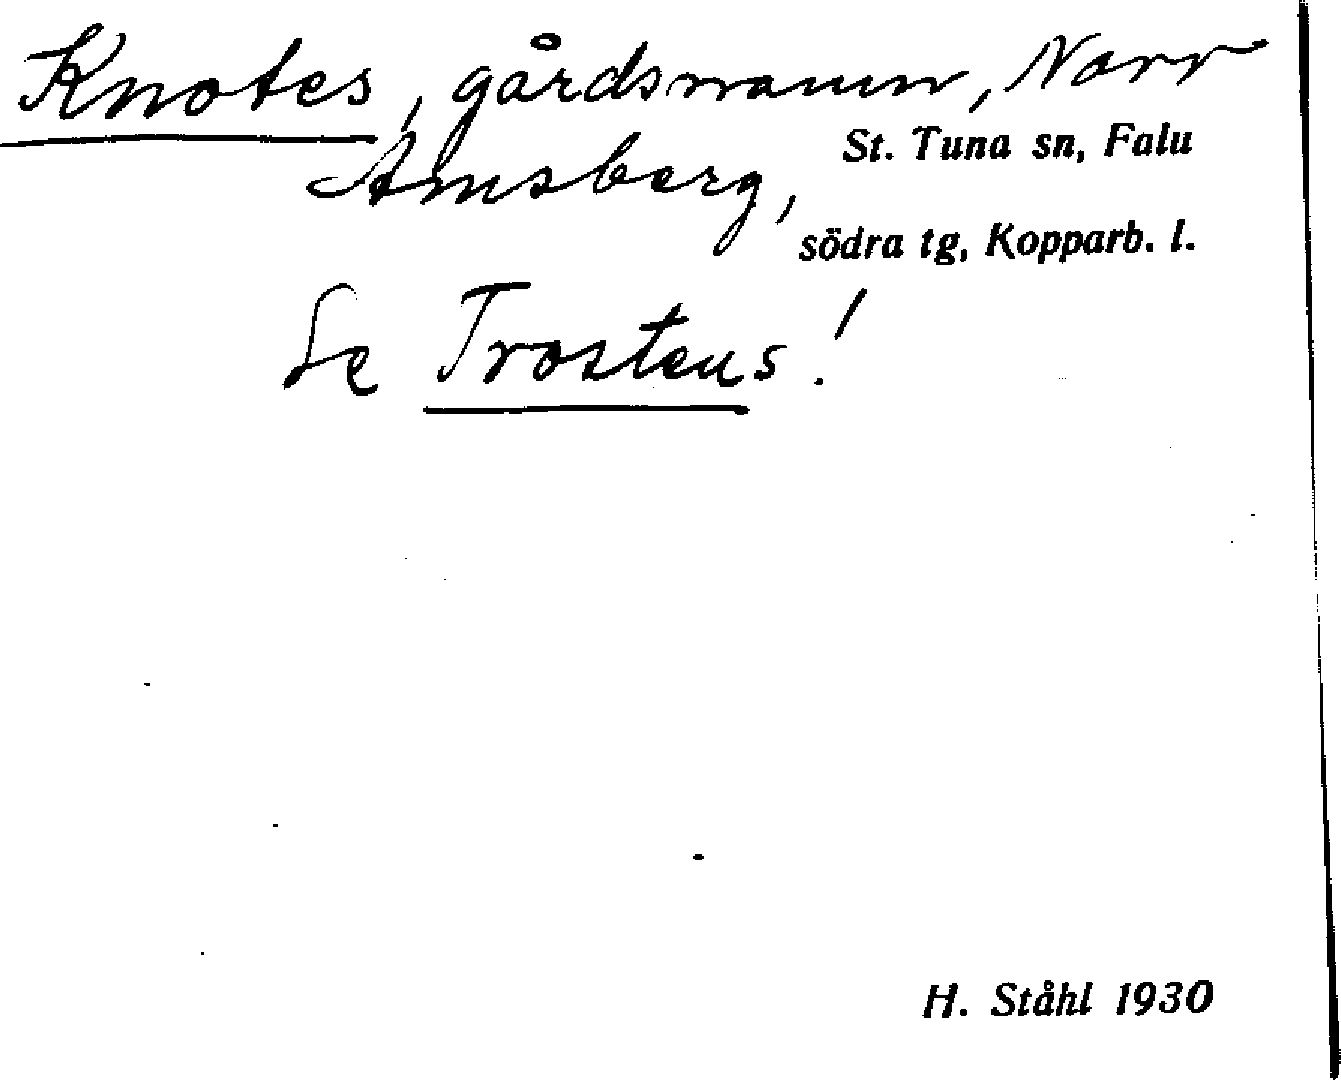 Knotes, gårdsnamn, Norr
Amsberg, St. Tuna sn, Falu
södra tg, Kopparb. l.
Se Trostens!
H. Ståhl 1930